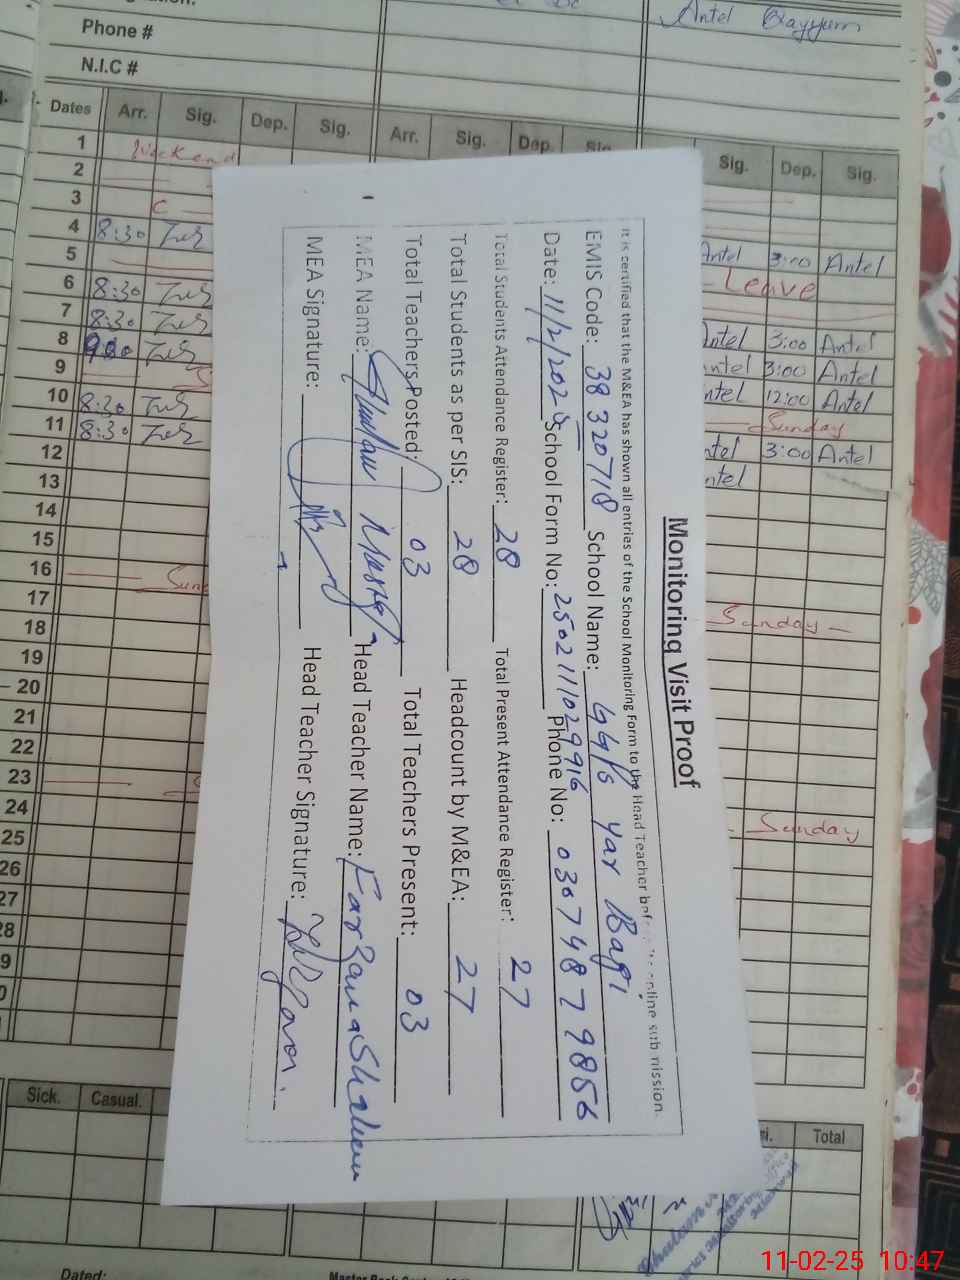 Phone #
N.I.C #
Antel Qayyum
Dates Arr. Sig. Dep. Sig. Arr. Sig. Dep. Sig. Sig. Dep. Sig.
1 Weekend
2
3
4 8:30
5 Antel 3:00 Antel
6 8:30 Leave
7 8:30
8 3:00 Antel
9 3:00 Antel
10 8:30 12:00 Antel
11 8:30 Sunday
12 3:00 Antel
13
14
15
16
17
18 Sunday
19
20
21
22
23
24
25 Sunday
26
27
28
Sick. Casual. Total
Monitoring Visit Proof
It is certified that the M&EA has shown all entries of the School Monitoring Form to the Head Teacher before the online submission.
EMIS Code: 38320718 School Name: GGPS Yar Bagi
Date: 11/2/2025 School Form No: 250211029916 Phone No: 03074879856
Total Students Attendance Register: 28 Total Present Attendance Register: 27
Total Students as per SIS: 28 Headcount by M&EA: 27
Total Teachers Posted: 03 Total Teachers Present: 03
MEA Name: Head Teacher Name: Farzana Shaheen
MEA Signature: Head Teacher Signature:
Dated:
11-02-25 10:47